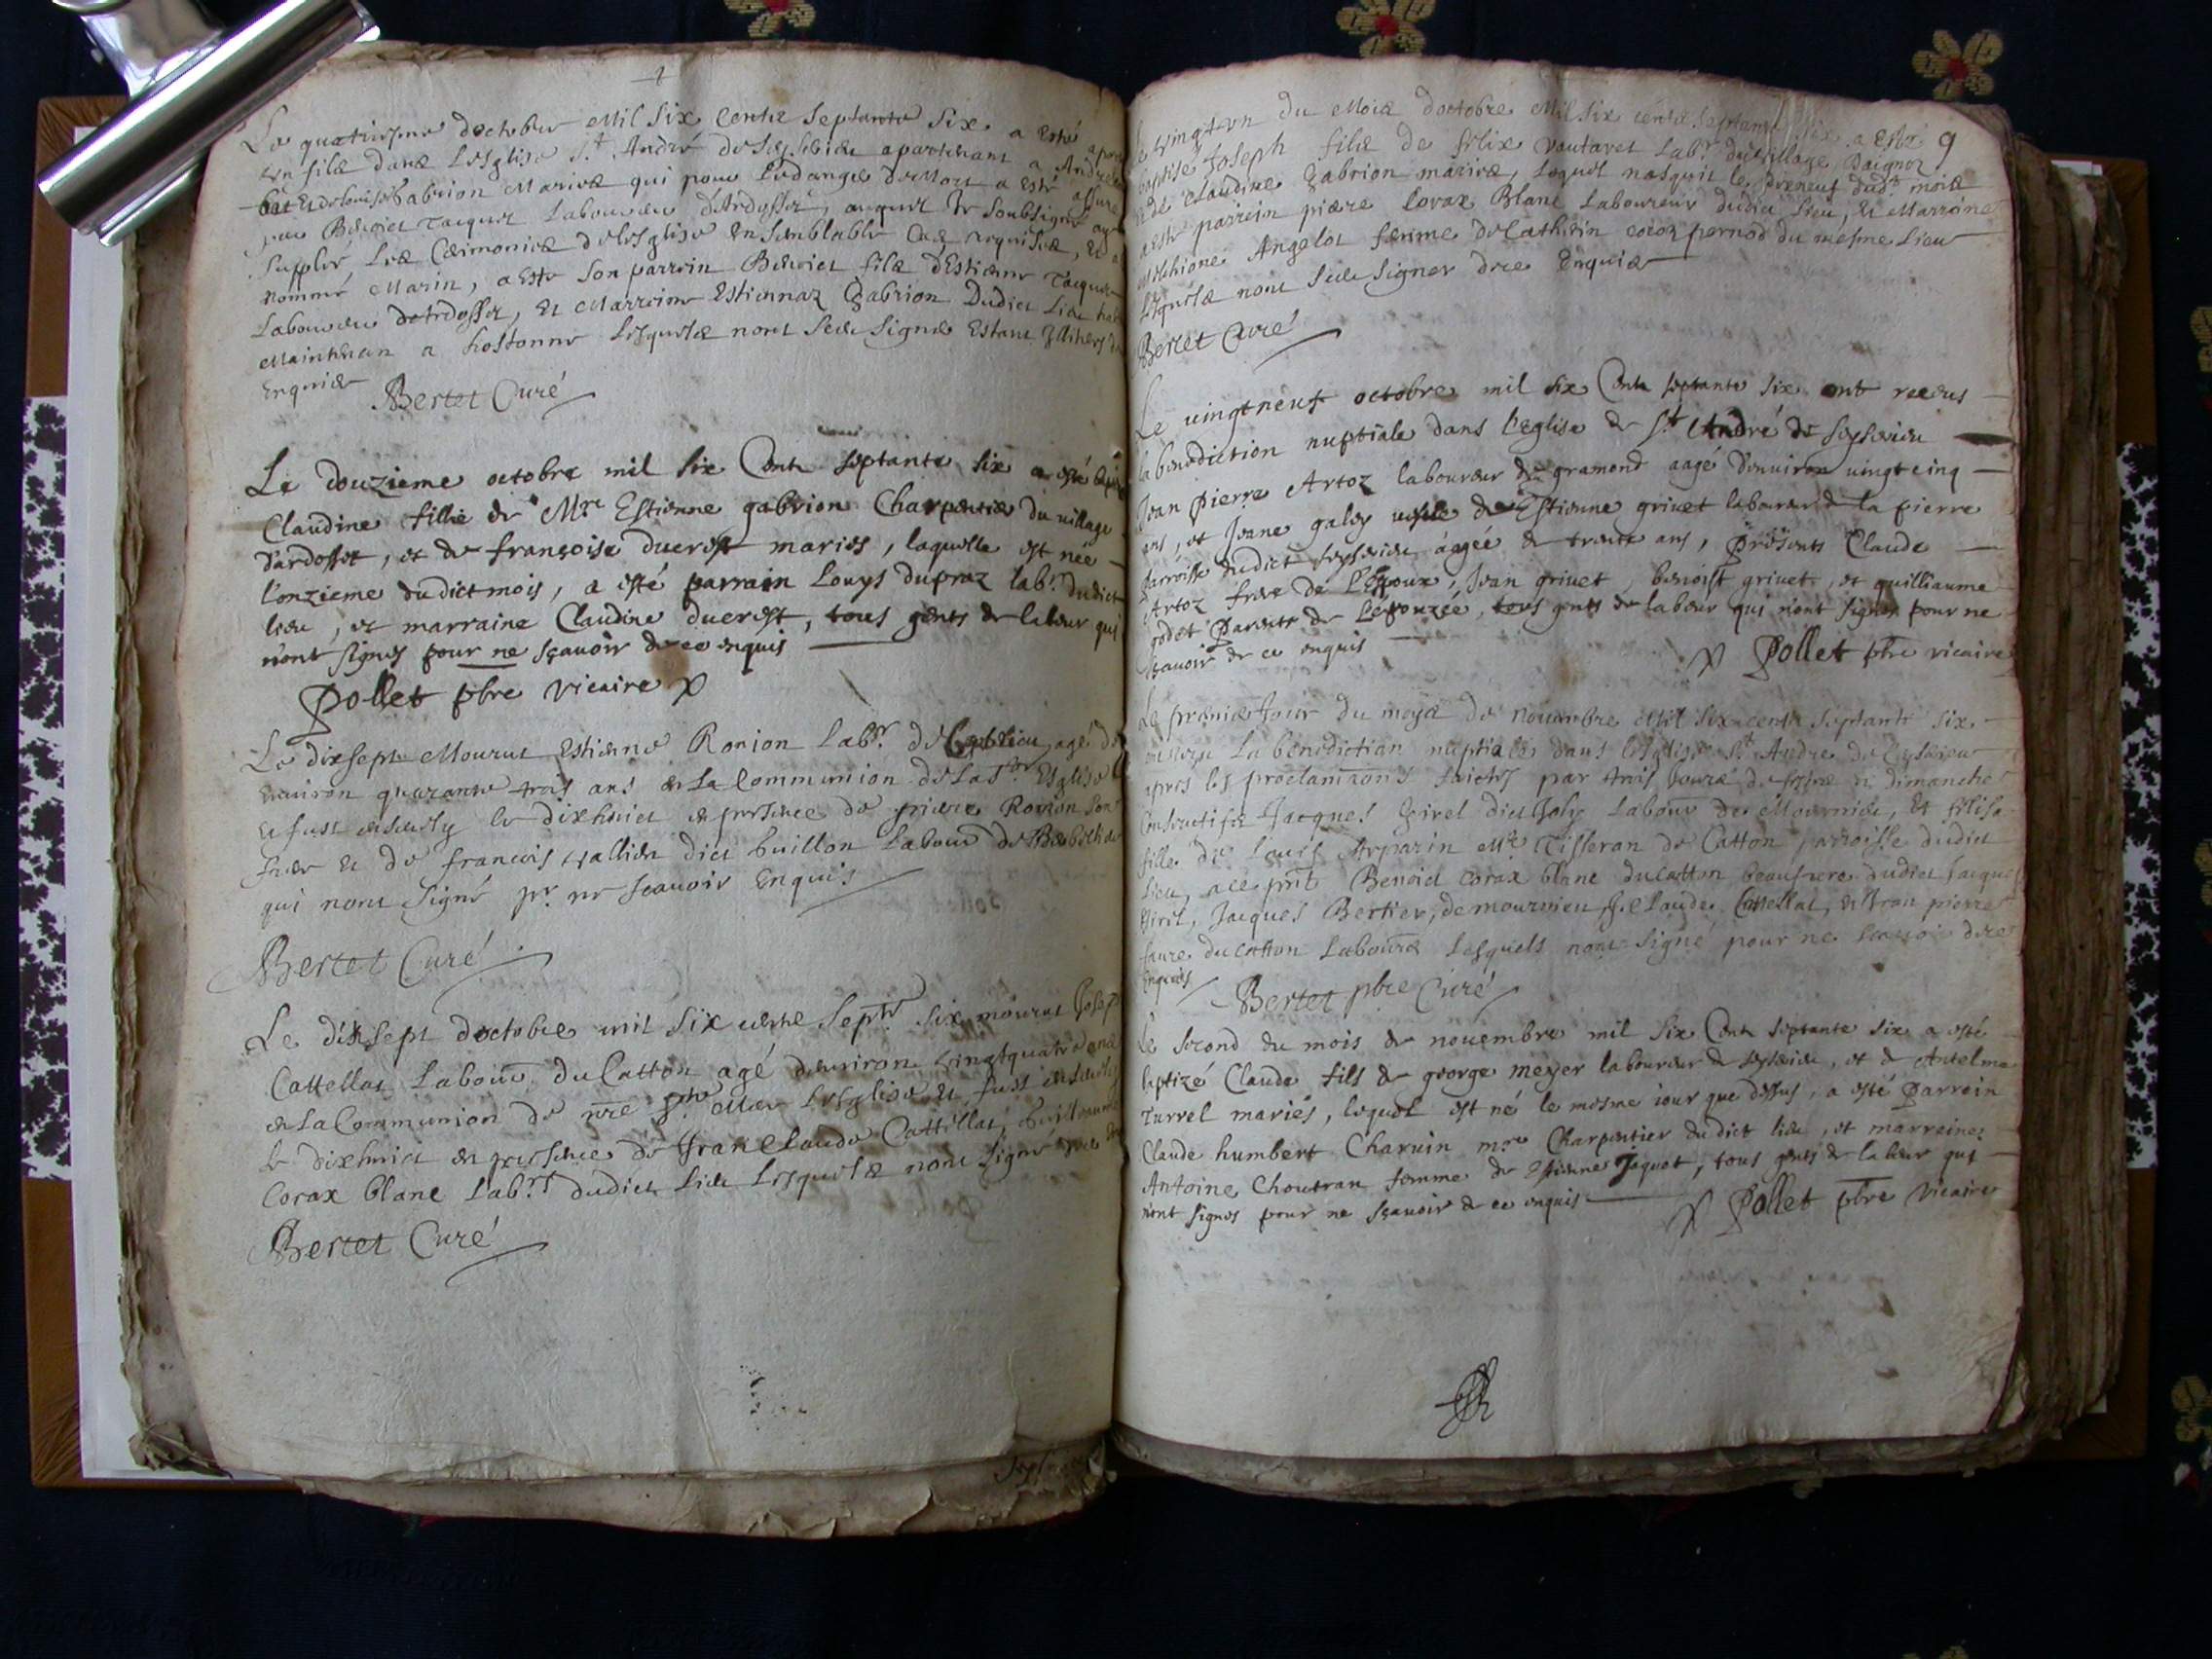 Le quatriesme doctobre Mil Six centz Septante Six a Esté aporté
Un filz dans Lesglise St André de apartenant a André
et de Louise Gabrion Mariez qui pour Le danger de Mort a Esté assuré
par Benoict Jacquet Laboureur d'Ardosset, auquel Je Soubsigné ay
Supplée Les Cerimonies de lesglise En Semblable Cas requises, Et a
nommé Marin, a Esté Son parrein Benoict filz d'Estienne Jacquet
Laboureur d'Ardosset, Et Marreine Estiennaz Gabrion Dudict Lieu
Maintenan a hostonne Lesquelz nont Sceu Signer Estant Illiterés
Enquis
Bertet Curé
Le douzieme octobre mil six Cents septante six a esté baptizée
Claudine fillie de Mre Estienne gabrion Charpentier du village
d'ardosset, et de françoise ducrest mariés, laquelle est née
l'onzieme dudict mois, a esté parrain Louys dupraz labr. dudict
lieu, et marraine Claudine ducrest, tous gents de labeur qui
n'ont signés pour ne sçavoir de ce enquis
Pollet pbre vicaire
Le dixsept Mourut Estienne Ronion Labr. de agé de
Environ quarante trois ans en La Communion de La Ste Esglise
Et fust ensevely le dixhuict en presence de pierre Ronion Son
frere Et de francois vallier dict buillon Labour de
qui nont Signé pr. ne Scavoir Enquis
Bertet Curé
Le dixsept doctobre mil Six centz Septte Six mourut Joseph
Cattellat Labour du Catton agé denviron vingtquatre ans
en La Communion de nre Ste Mere Lesglise et fust ensevely
le dixhuict en presence de Jean Claude Cattellat, Guillaume
Corax blanc Labrs dudict Lieu Lesquelz nont Signé
Bertet Curé
9
Le vingt un du Mois doctobre Mil Six centz Septante Six a Esté
baptisé Joseph filz de felix vautaret Labr du village Baignoz
et de Claudine Gabrion mariez, Lequel nasquit le dixneuf dudt mois
a este parrein piere Corax Blanc Laboureur dudict Lieu, Et Marreine
Melchione Angelot femme de Cathein coco pernod du mesme Lieu
Lesquelz nont Sceu Signer dece Enquis
Bertet Curé
Le vingtneuf octobre mil six Cents septante six ont receus
la benediction nuptiale dans l'eglise de St André de seyserieu
Jean Pierre Artoz laboureur de gramond aagé d'environ vingtcinq
ans, et Jeane galey vefve de Estienne grivet laboureur de la pierre
parroisse dudict seyserieu aagée de trente ans, présents Claude
Artoz frere de l'Epoux, Jean grivet, benoist grivet, et guilliaume
godet Parents de L'Epouzée, tous gents de labeur qui n'ont signés pour ne
sçavoir de ce enquis
Pollet pbre vicaire
Le premier Jour du moys de Novembre Mil Six centz Septante Six
ont receu La benediction nuptiale dans lesglise St Andre de Ceyserieu
apres les proclamaons faictes par trois Jours de festes et dimanches
Consecutifz Jacques Girel dict Joly Labour de Mourvieu, Et felisa
fille de Louis Arparin Mre Tisseran de Catton parroisse dudict
Lieu, a ce pnt Benoict Corax blanc du Catton beaufrere dudict Jacques
Girel, Jacques Bertier, de mourvieu, Claude Cattellat, et Jean pierre
faure du Catton Labours Lesquels nont Signé pour ne Scavoir dece
Enquis
Bertet pbre Curé
Le second du mois de novembre mil six Cents septante six a esté
baptizé Claude fils de george meyer laboureur de seyserieu, et de Antelma
Turrel mariés, lequel est né le mesme jour que dessus, a esté Parrain
Claude humbert Charvin mre Charpentier dudict lieu, et marraine
Antoine Choutran femme de Estienne Jaquet, tous gents de labeur qui
n'ont signés pour ne sçavoir de ce enquis
Pollet pbre vicaire